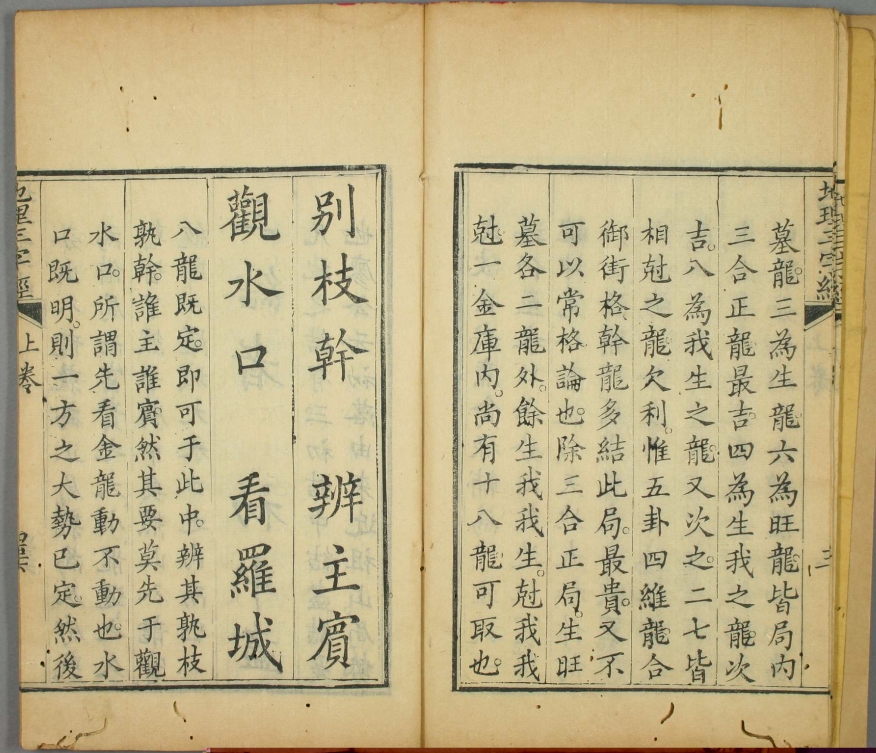 墓龍。三為生龍。六為旺龍。皆局內
三合正龍最吉。四為生我之龍次
吉。八為我生之龍。又次之。二七皆
相尅之龍欠利。惟五卦四維龍合
御街格幹龍多結此局。最貴。又不
可以常格論也。除三合正局。生旺
墓各二龍外。餘生我我生。尅我我
尅一金庫內。尚有十八龍可取也。
別枝幹 辨主賓
觀水口 看羅城
八龍既定。即可于此中。辨其孰枝
孰幹。誰主誰賓。然其要莫先于觀
水口。所謂先看金龍動不動也。水
口既明。則一方之大勢已定。然後
地理三字經
上卷